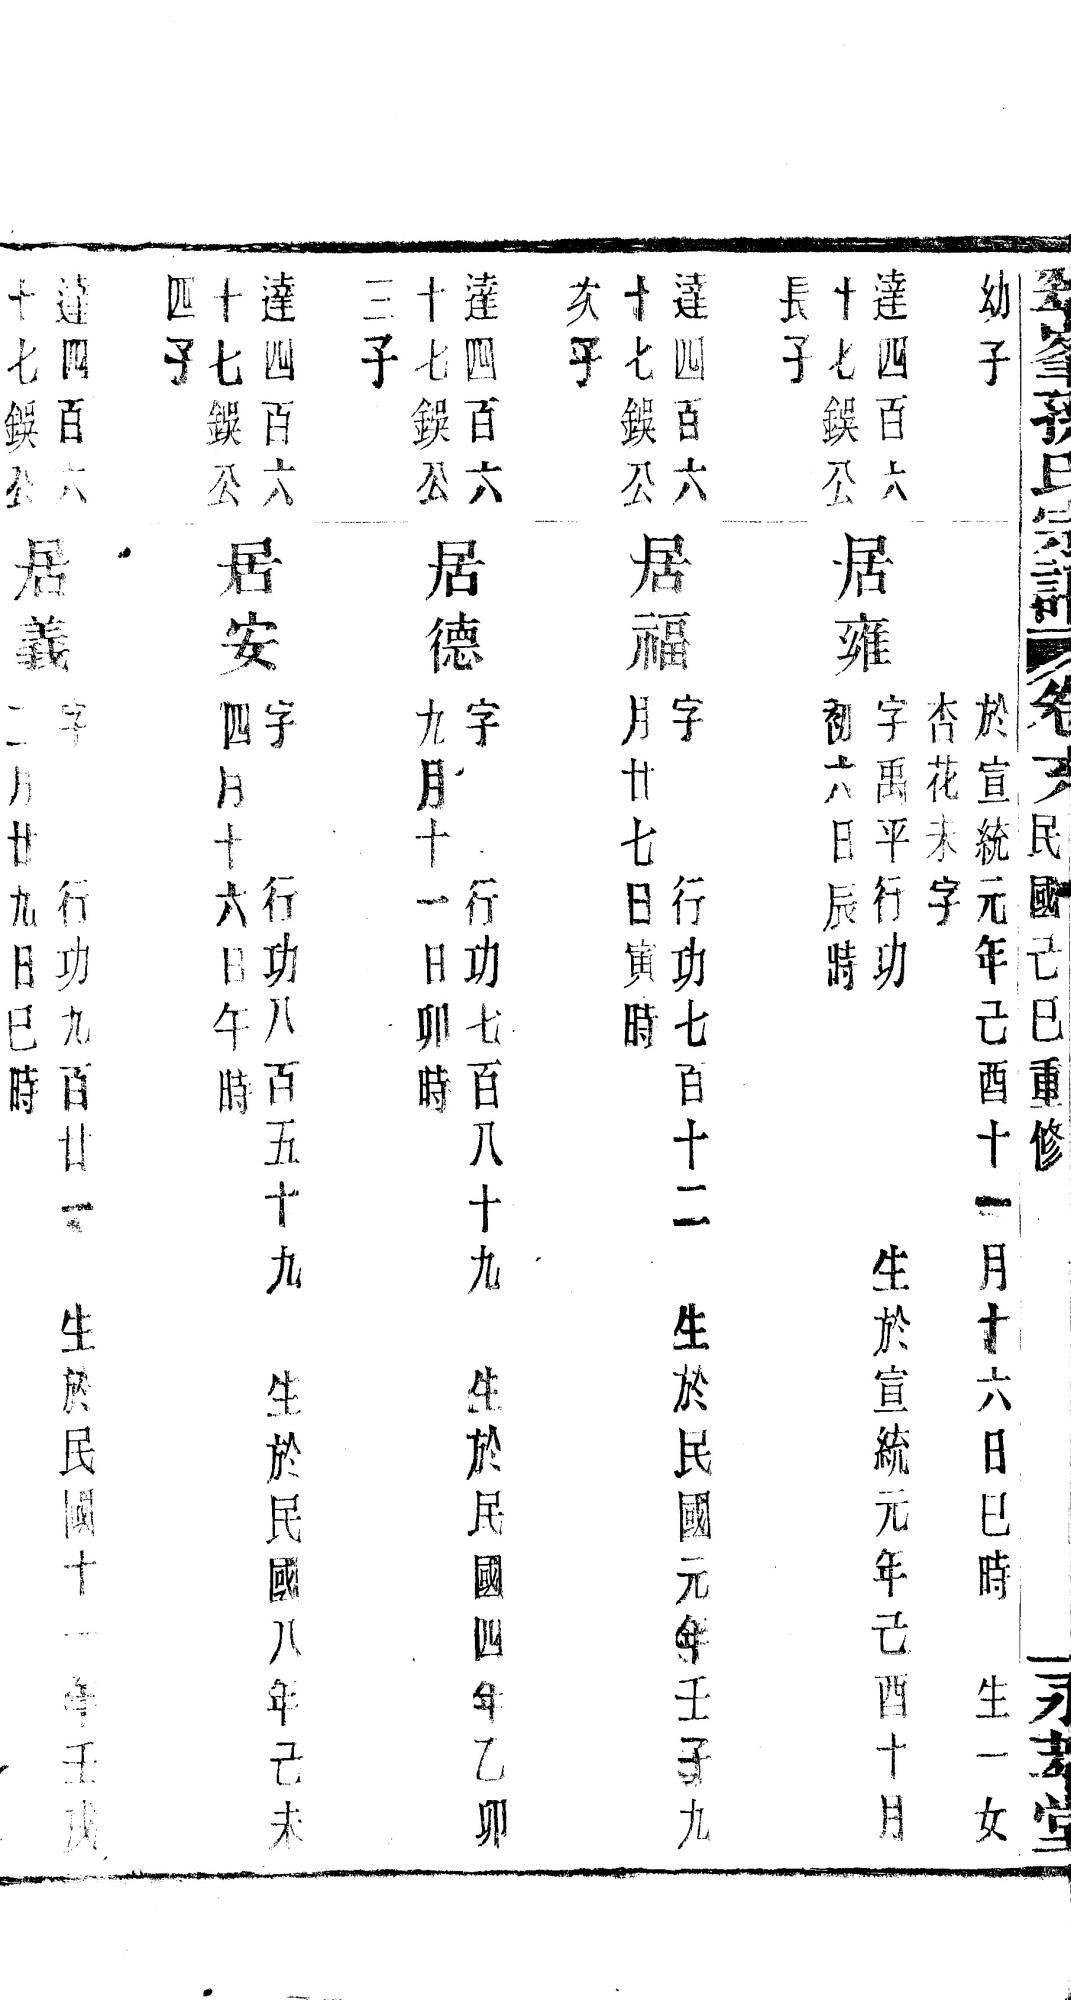 孫氏宗譜
卷六
民國己巳重修
堂
幼子
於宣統元年己酉十一月十六日巳時 生一女
杏花未字
達四百六
十七鋘公
長子
居雍
字禹平行功 生於宣統元年己酉十月
初六日辰時
達四百六
十七鋘公
次子
居福
字 行功七百十二 生於民國元年壬子九
月廿七日寅時
達四百六
十七鋘公
三子
居德
字 行功七百八十九 生於民國四年乙卯
九月十一日卯時
達四百六
十七鋘公
四子
居安
字 行功八百五十九 生於民國八年己未
四月十六日午時
達四百六
十七鋘公
居義
字 行功九百廿一 生於民國十一年壬戌
二月廿九日巳時